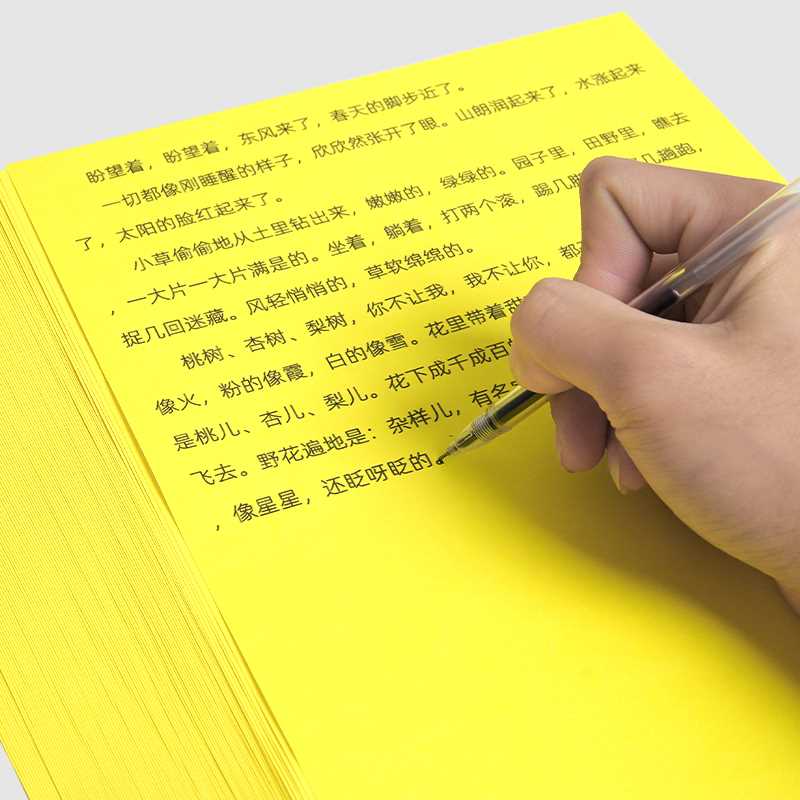 盼望着，盼望着，东风来了，春天的脚步近了。
一切都像刚睡醒的样子，欣欣然张开了眼。山朗润起来了，水涨起来
了，太阳的脸红起来了。
小草偷偷地从土里钻出来，嫩嫩的，绿绿的。园子里，田野里，瞧去
，一大片一大片满是的。坐着，躺着，打两个滚，踢几 几趟跑，
捉几回迷藏。风轻悄悄的，草软绵绵的。
桃树、杏树、梨树，你不让我，我不让你，都
像火，粉的像霞，白的像雪。花里带着甜
是桃儿、杏儿、梨儿。花下成千成百
飞去。野花遍地是：杂样儿，有名
，像星星，还眨呀眨的。